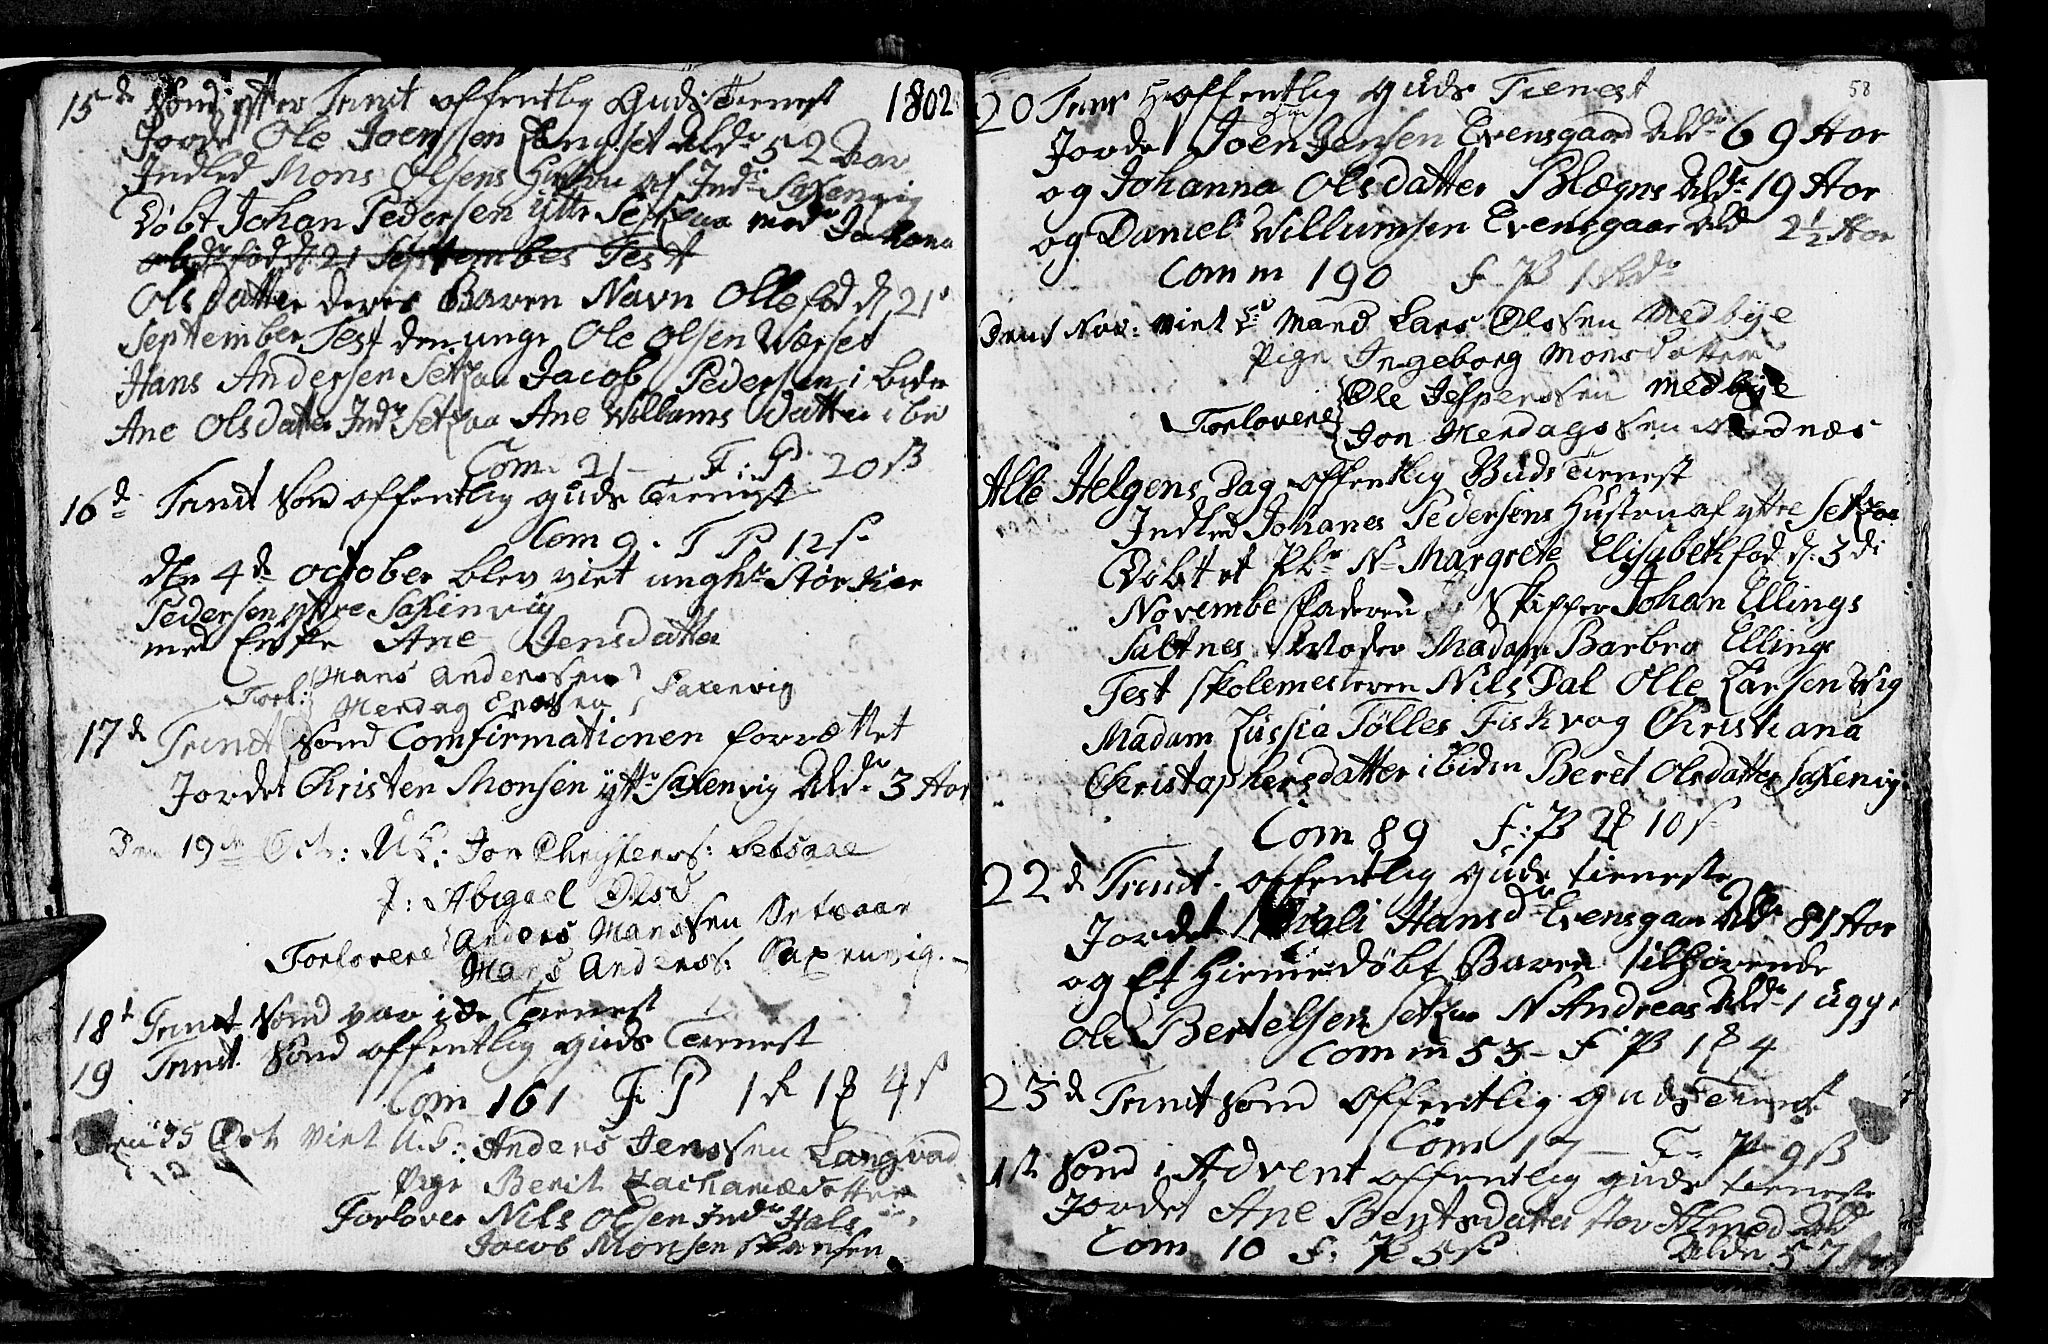 15de Sönd: efter Trinit offentlig Guds Tienest 1802
Jordet Ole Joensen Langset Ald: 52 Aar
Indled Mons Olsens Hustru af Ind: Saxenvig
Döbt Johan Pedersen ytt: Setsaa mod: Johana
født d: 21 September Test
Olsdatter deris Baren Navn Olle fød d 21
September Test den unge Ole Olsen Værset
Hans Andersen Setsaa Jacob Pedersen ibiden
Ane Olsdatter Ind: Setsaa Ane Willums datter ibi
Com. 21 – F: P. 20 ß
16d Trinit Sönd offentlig Guds Tienest
Com 9. F P 12 s
den 4de october blev viet ungk:
Pedersen yttre Saxenvig
med Enke Ane Jensdatter
Forl: Hans Anderssen
Merdag Saxenvig
17de Trinit Sönd Comfirmationen forrættet
Jordet Christen Monsen ytt: Saxenvig Ald: 3 Aar
Den 19de Oct: U.K: Jon Christens: Setsaae
P: Abigael Olsd
Forlovere Anders Manssen Setsaae
Mans Anders: Saxenvig. –
18d Trinit Sönd Tienest
19 Trinit. Sönd offentlig guds Tienest
Com 161 F P 1 R 4 s
Oct viet U.K: Anders Jenssen Langvad
Pige Berit Zachariædatter
Forlover Nils Olsen Ind: Hals
Jacob Monsen
58
20 Trin: offentlig guds Tienest
Jordet Joen Jensen Evensgaard Ald: 69 Aar
og Johanna Olsdatter Ald: 19 Aar
og Daniel Willumsen Evensgaar Ald 2½ Aar
Comm 190 F P 1
Nov: viet E: Mand Lars Olssen Medbye
Pige Ingeborg Monsdatter
Ole Jespersen Medbye
Forlovere
Jon Merdagssen
Alle Helgens Dag offentlig Guds Tienest
Indled Johanes Pedersens Hustru af yttre Setsaa
Döbt et N: Margrete Elisabeth fød d. 3di
Novembe faderen Skipper Johan Ellings
Saltnes Moder Madam Barbro Ellings
Test Skolemesteren Nils Dal Olle Larsen Vig
Madam Lussia Tölles Fiskvog Christiana
Christophersdatter ibiden Beret Olsdatter Saxenvig
Com 89 F: P 10 s
22d Trinit. offentlig guds tieneste
Jordet Hansd: Evensgaar Ald: 81 Aar
og Et Hiemmedöbt Baren tilhörende
Ole Bertelsen Setsaa N Andreas Ald: 1 uge
Comm 53 – F P 1 4
23d Trinit Sönd offentlig guds Tienest
Com 17 – F P 9 ß
1ste Sönd i Advent offentlig guds tieneste
Jordet Ane Bentsdatter
Com 10 F: P 5 s Alder 57 Aar